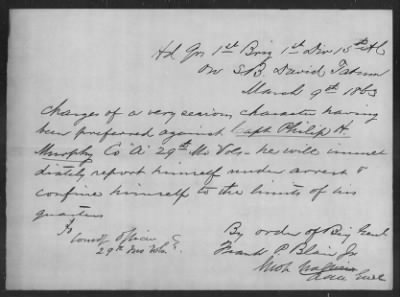 Hd Qrs 1st Brig 1st Div 15th AC
On S.B. David Tatum
March 9th 1863
Charges of a very serious character having
been preferred against Capt Philip H.
Murphy Co "A" 29th Mo Vols - he will immed
diately report himself under arrest &
confine himself to the limits of his
quarters
To
Comdg Officer
29th Mo Vols
By order of Brig Genl
Frank P Blair Jr